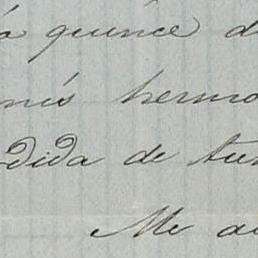 á quince d
nis hermo
dida de tu
Me a